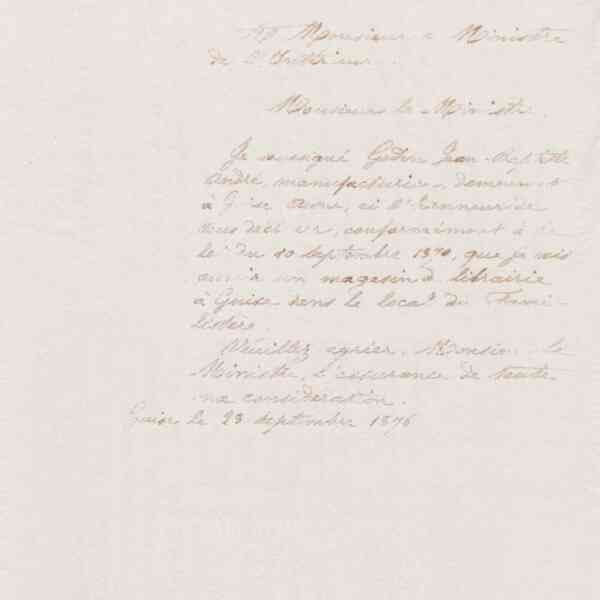 A Monsieur le Ministre
de l'Intérieur.
Monsieur le Ministre,
Je soussigné Godin Jean-Baptiste
André, manufacturier, demeurant
à Guise Aisne, ai l'honneur de
vous déclarer, conformément à la
loi du 10 septembre 1870, que je vais
ouvrir un magasin de librairie
à Guise dans le local du Fami-
listère.
Veuillez agréer, Monsieur le
Ministre, l'assurance de toute
ma considération.
Guise le 23 septembre 1876